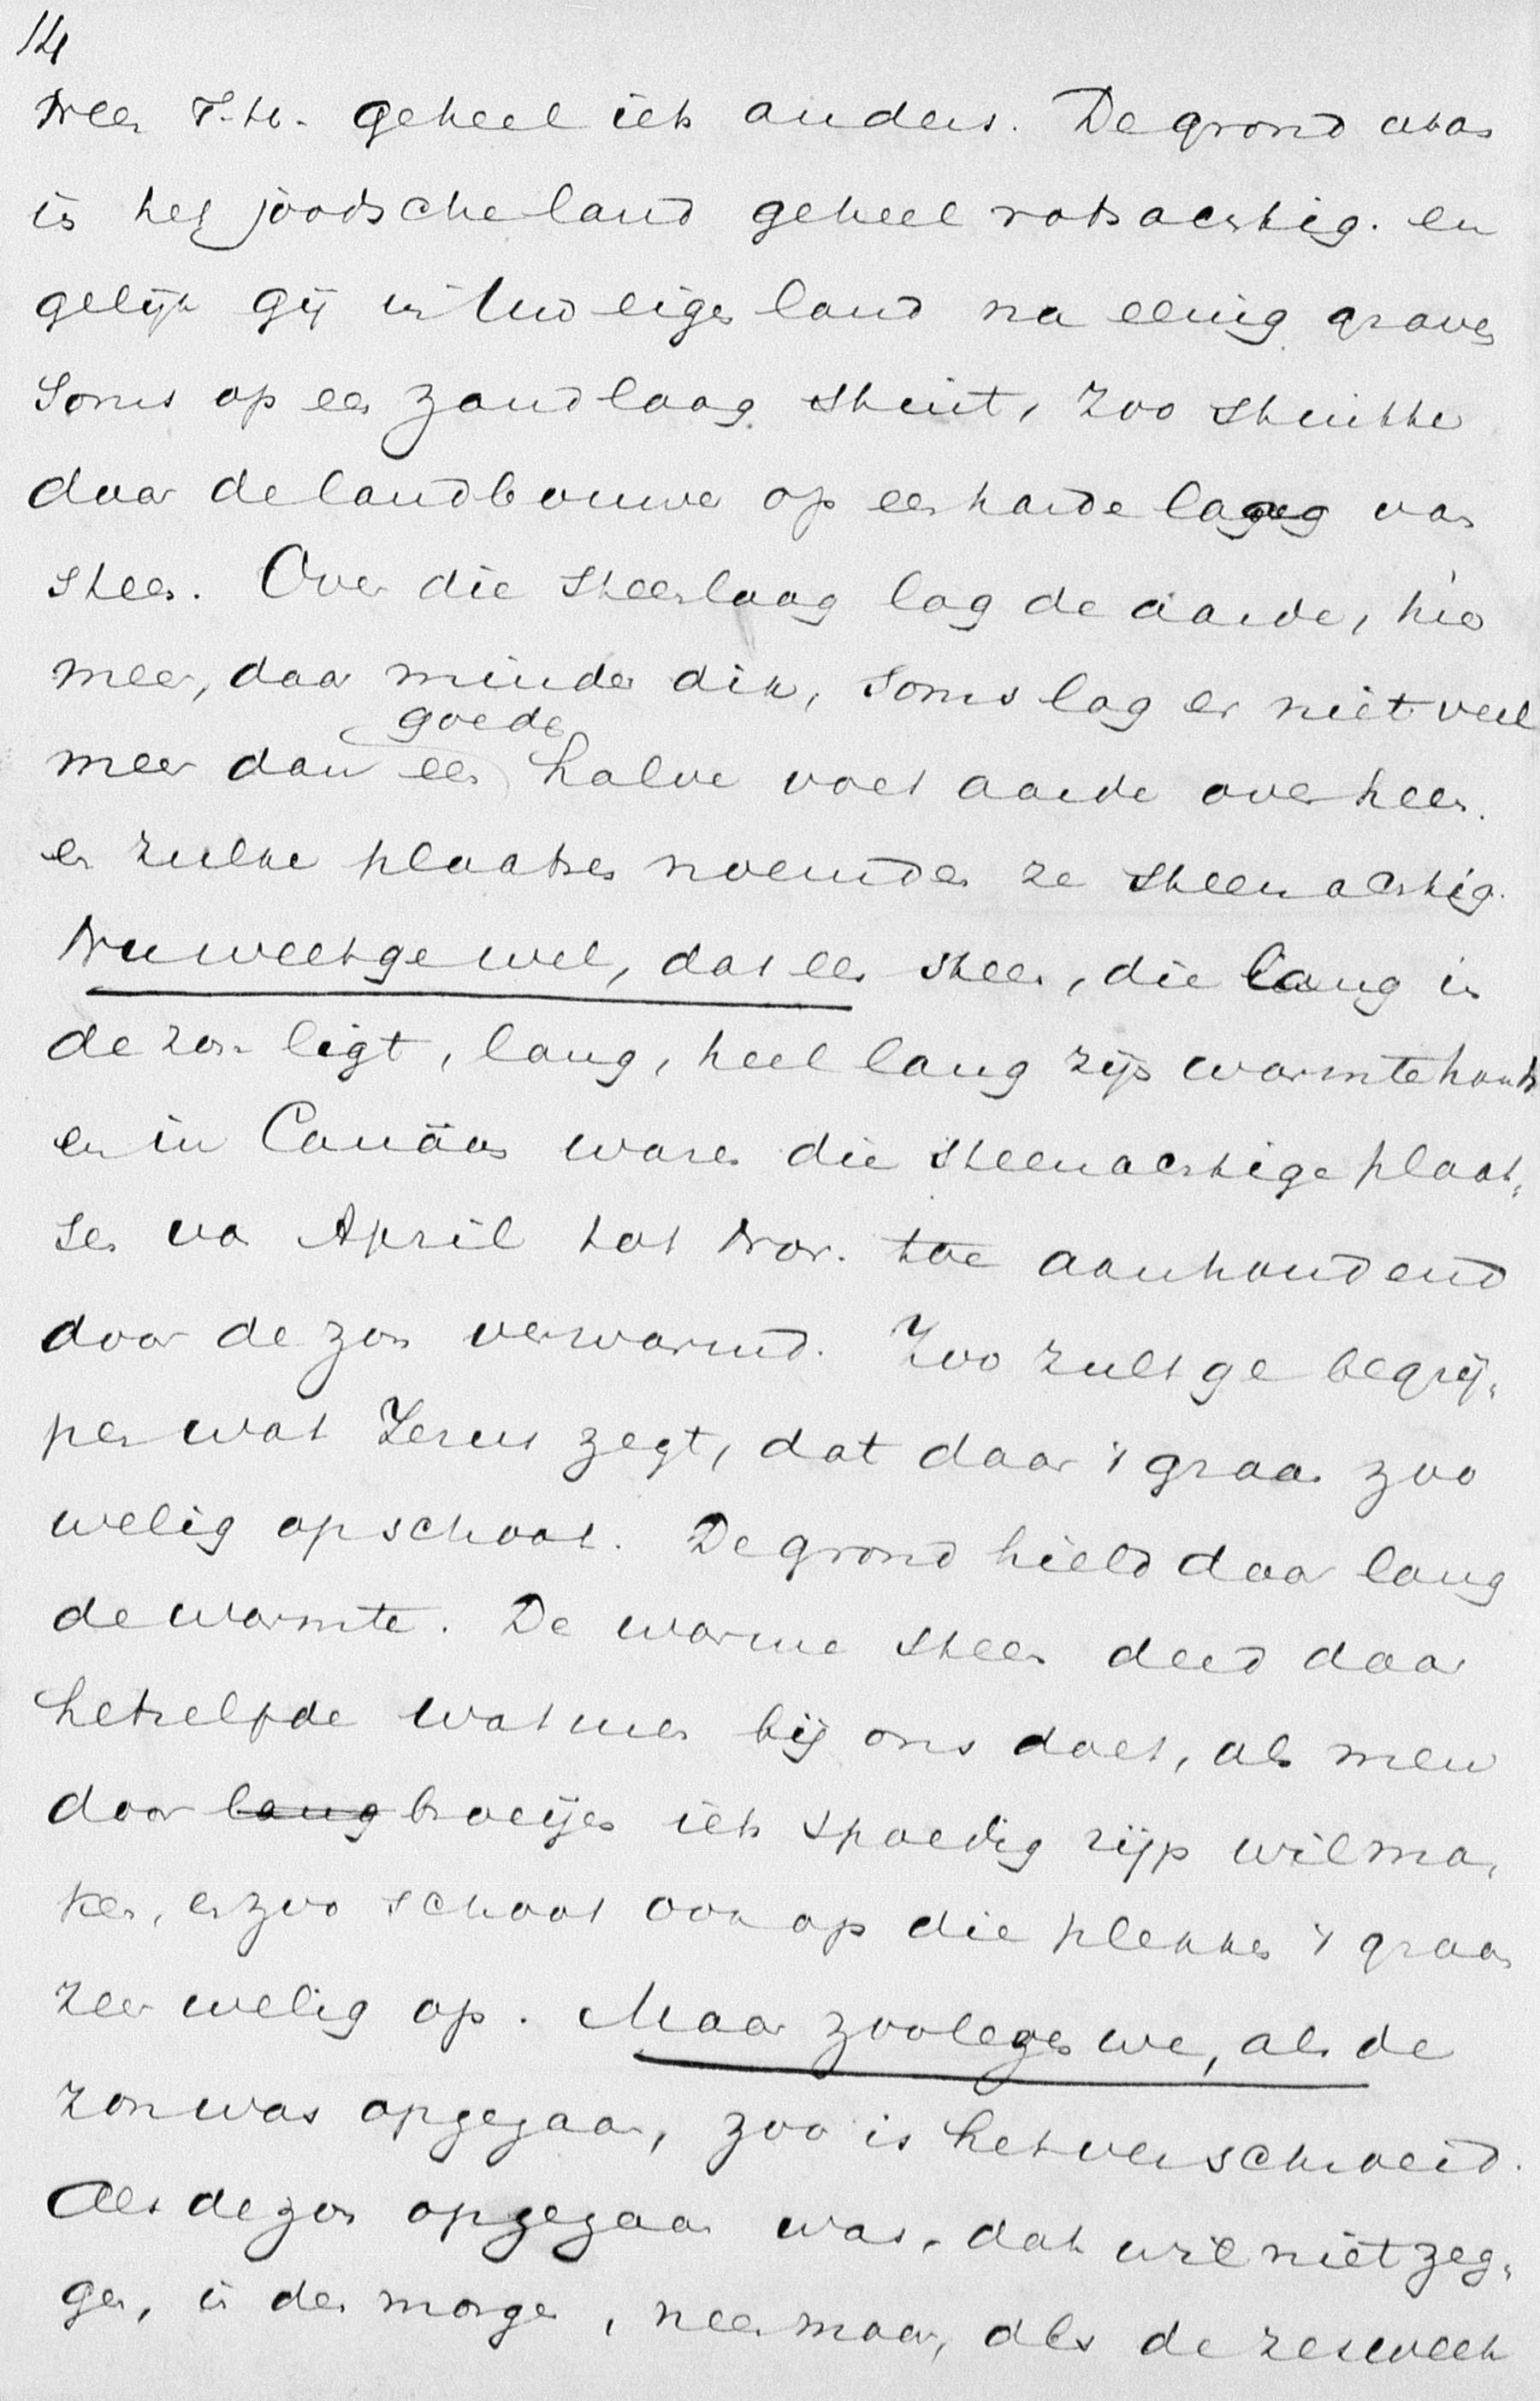 14
Neen T.H. geheel iets anders. De grond was
in het joodsche land geheel rotsachtig. en
gelijk gij in Uw eigen land na eenig graven
soms op een zandlaag stuit, zoo stuitte
daar de landbouwer op een harde laag van
steen. Over die steenlaag lag de aarde, hier
meer, daar minder dik, soms lag er niet veel
goede
meer dan een halve voet aarde overheen.
en zulke plaatsen noemden ze steenachtig.
Nu weet ge wel, dat een steen, die lang in
de zon ligt, lang, heel lang zijn warmte houdt
en in Canäan waren die steenachtige plaat,
sen van April tot Nov. toe aanhoudend
door de zon verwarmd. Zoo zult ge begrij,
pen wat Jezus zegt, dat daar 't graan zoo
welig opschoot. De grond hield daar lang
de warmte. De warme steen deed daar
hetzelfde wat men bij ons doet, als men
door lang broeijen iets spoedig rijp wil ma,
ken, en zoo schoot ook op die plekken 't graan
zeer welig op. Maar zoo lezen we, als de
zon was opgegaan, zoo is het verschroeid.
Als de zon opgegaan was, dat wil niet zeg,
gen, in den morgen, neen maar, als de